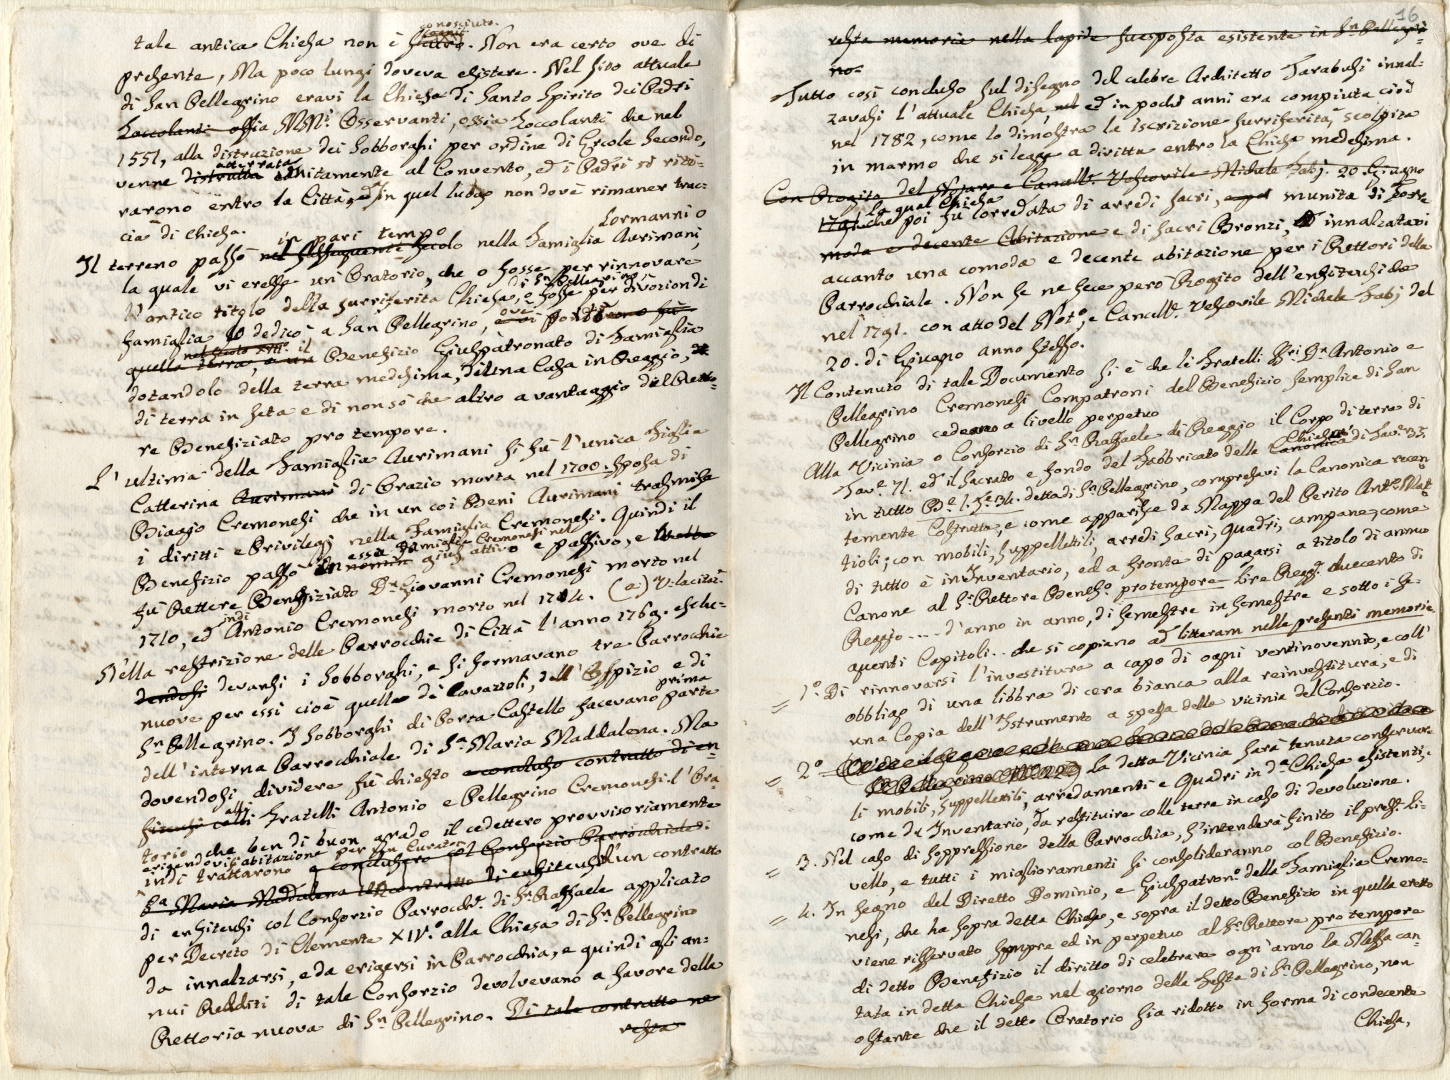 conosciuto.
tale antica Chiesa non è. Non era certo ove di
presente, Ma poco lungi doveva esistere. Nel sito attuale
di San Pellegrino eravi la Chiesa di Santo Spirito dei Padri
Zoccolanti ossia MM.i Osservanti, ossia Zoccolanti che nel
1551, alla distruzione dei Sobborghi per ordine di Ercole Secondo,
atterrata
venne distrutta unitamente al Convento, ed i Padri si rico-
varono entro la Città, ed in quel luogo non dovè rimaner trac-
cia di Chiesa.
in pari tempo Lormanni o
Il terreno passò nel susseguente secolo nella Famiglia Aurimani,
la quale vi eresse un Oratorio, che o fosse per rinnovare
di Sn Pellegrino
l'antico titolo della surriferita Chiesa, o fosse per divozion di
famiglia lo dedicò a San Pellegrino, ove
nel Secolo XVII. il
quella terra, e un Benefizio Giuspatronato di Famiglia
dotandolo della terra medesima, di una Casa in Reggio,
di terra in Seta e di non sò che altro a vantaggio del Retto-
re Benefiziato pro tempore.
L'ultima della Famiglia Aurimani si fù l'unica Figlia
Catterina Aurimani di Orazio morta nel 1700. Sposa di
Biaggio Cremonesi che in un coi Beni Aurimani trasmise
i diritti e Privilegj nella Famiglia Cremonesi. Quindi il
essa Famiglia Cremonesi nel
Benefizio passò in giusattivo e passivo, e
fù Rettore Benefiziato Dn Giovanni Cremonesi morto nel
indi
1710, ed Antonio Cremonesi morto nel 1714. (a) V. la citaz.
Nella restrizione delle Parrocchie di Città l'anno 1769. esclu-
dendosi devansi i Sobborghi, e si formavano tre Parrocchie
nuove per essi cioè quelle di Cavazzoli, dell'Ospizio e di
prima
Sn Pellegrino. I Sobborghi di Porta Castello facevano parte
dell'interna Parrocchiale di Sa Maria Maddalena. Ma
dovendosi dividere fù chiesto e concluso contratto di en
alli Fratelli Antonio e Pellegrino Cremonesi l'Ora-
torio che ben di buon grado il cedettero provvisoriamente
erigendovi abitazione per un Curato
indi trattarono e conclusero col Consorzio Parrocchiale di
Sa Maria Maddalena il contratto di enfiteusi d'un contratto
di enfiteusi col Consorzio Parrocch.e di Sn Raffaele applicato
per Decreto di Clemente XIV.o alla Chiesa di Sn Pellegrino
da innalzarsi, e da erigersi in Parrocchia, e quindi gli an-
nui Redditi di tale Consorzio devolvevano a favore della
Rettoria nuova di Sn Pellegrino. Di tale contratto ne
resta
16
resta memoria nella lapide suesposta esistente in Sn Pellegri-
no.
Tutto così concluso sul disegno del celebre Architetto Tarabusi innal-
zavasi l'attuale Chiesa, ed in pochi anni era compiuta cioè
nel 1782, come lo dimostra la iscrizione surriferita scolpita
in marmo che si legge a diritta entro la Chiesa medesima.
Con Rogito del Notaro e Cancell.e Vescovile Michele Fabj. 20. Giugno
la qual Chiesa
1791. che poi fu corredata di arredi sacri, munita di Torre
moda e decente Abitazione e di sacri Bronzi, ed innalzatavi
accanto una comoda e decente abitazione per i Rettori della
Parrocchiale. Non se ne fece però Rogito dell'enfiteusi che
nel 1791. con atto del Not.o e Cancell.e Vescovile Michele Fabj del
20. di Giugno anno stesso.
Il Contenuto di tale Documento si è che li Fratelli SS.ri Dn Antonio e
Pellegrino Cremonesi Compatroni del Benefizio semplice di San
Pellegrino cedeano a livello perpetuo
Alla Vicinia o Consorzio di Sn Raffaele di Reggio il Corpo di terra di
Chiesa e
Tav.e 71. ed il Sacrato e fondo del Fabbricato della Canonica di Tav.e 23.
in tutto detta di Sn Pellegrino, compresavi la Canonica recen-
temente Costrutta, e come apparisce da Mappa del Perito Ant.o Mat-
tioli; con mobili, suppellettili, arredi sacri, Quadri, campane, come
di tutto è in Inventario, ed a fronta di pagarsi a titolo di annuo
Canone al Sr Rettore Benef.o protempore lire Regg.e duecento di
Reggio .... d'anno in anno, di semestre in semestre e sotto i se-
guenti Capitoli. che si copiano ad litteram nelle presenti memorie
= 1.o Di rinnovarsi l'investitura a capo di ogni ventinovennio, e coll'
obbligo di una libbra di cera bianca alla reinvestitura, e di
una Copia dell'Istrumento a spesa della vicinia del Consorzio.
= 2.o La detta Vicinia sarà tenuta conservar
li mobili, suppellettili, arredamenti e Quadri in da Chiesa esistenti,
come da Inventario, da restituire colle terre in caso di devoluzione.
= 3. Nel caso di Soppressione della Parrocchia, s'intenderà finito il pres.te li-
vello, e tutti i miglioramenti si consolideranno col Benefizio.
= 4. In segno del Diretto Dominio, e Giuspatron.o della Famiglia Cremo-
nesi, che ha sopra detta Chiesa, e sopra il detto Benefizio in quella eretto
viene riservato sempre ed in perpetuo al Sr Rettore pro tempore
di detto Benefizio il diritto di celebrare ogni anno la Messa can-
tata in detta Chiesa nel giorno della Festa di Sn Pellegrino, non
ostante che il detto Oratorio sia ridotto in forma di condecente
Chiesa,